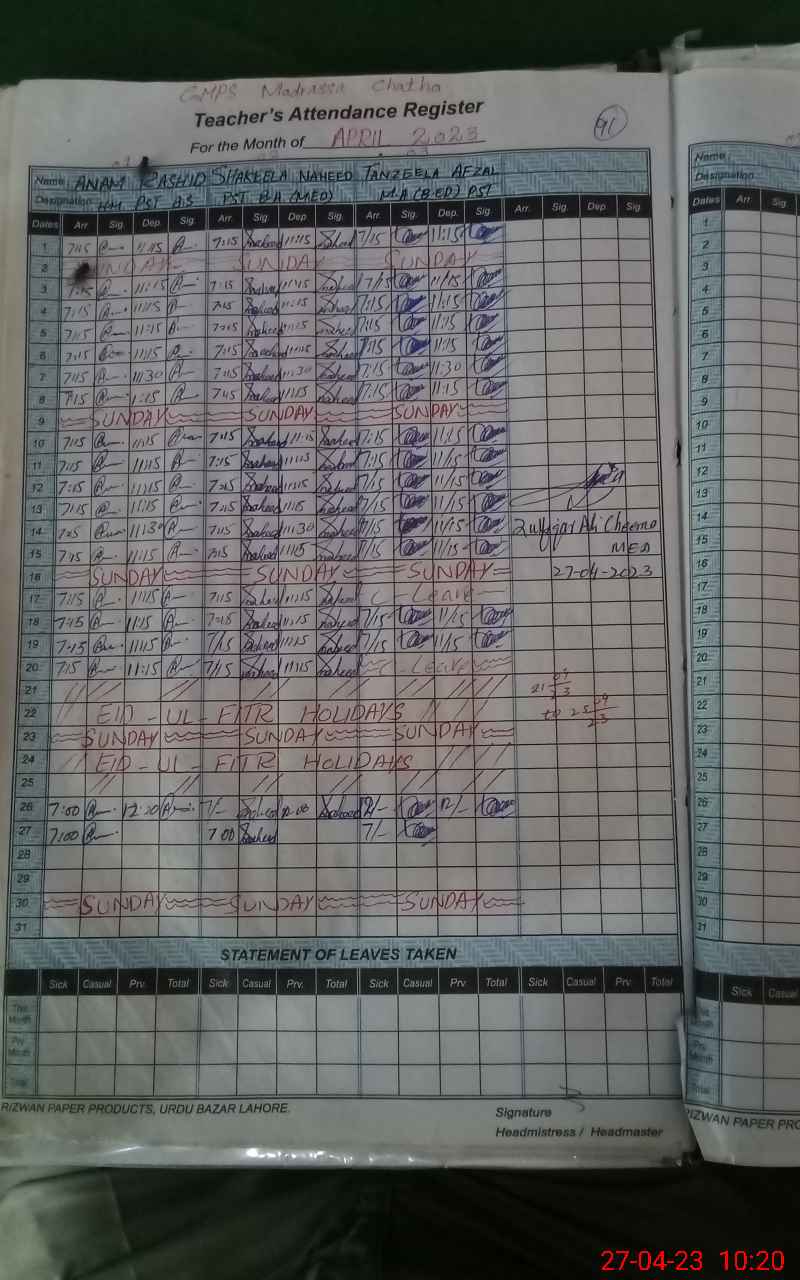 GMPS Madrassa Chatha
Teacher's Attendance Register
91
For the Month of APRIL 2023
Name ANAM RASHID SHAKEELA NAHEED TANZEELA AFZAL
Designation HM PST BS PST B.A (MED) M.A (B.ED) PST
Dates Arr. Sig. Dep. Sig. Arr. Sig. Dep. Sig. Arr. Sig. Dep. Sig. Arr. Sig. Dep. Sig.
1 7:15 11:15 7:15 Naheed 11:15 Naheed 7/15 11:15
2 SUNDAY SUNDAY SUNDAY
3 7:15 11:15 7:15 11:15 7/15 11/15
4 7:15 11:15 7:15 11:15 7:15 11:15
5 7:15 11:15 7:15 Naheed 11:15 Naheed 7:15 11:15
6 7:15 11:15 7:15 Naheed 11:15 Naheed 7:15 11:15
7 7:15 11:30 7:15 Naheed 11:30 Naheed 7:15 11:30
8 7:15 11:15 7:15 Naheed 11:15 Naheed 7:15 11:15
9 SUNDAY SUNDAY SUNDAY
10 7:15 11:15 7:15 Naheed 11:15 Naheed 7:15 11:15
11 7:15 11:15 7:15 Naheed 11:15 Naheed 7:15 11:15
12 7:15 11:15 7:15 Naheed 11:15 Naheed 7/15 11/15
13 7:15 11:15 7:15 Naheed 11:15 Naheed 7/15 11/15
14 7:15 11:30 7:15 Naheed 11:30 Naheed 7/15 11/15 Zulfiqar Ali Cheema
15 7:15 11:15 7:15 Naheed 11:15 Naheed 7/15 11/15 MED
16 SUNDAY SUNDAY SUNDAY 27-04-2023
17 7:15 11:15 7:15 Naheed 11:15 Naheed C - Leave
18 7:15 11:15 7:15 Naheed 11:15 Naheed 7/15 11/15
19 7:15 11:15 7/15 Naheed 11:15 Naheed 7/15 11/15
20 7:15 11:15 7/15 Naheed 11:15 Naheed C - Leave
21
22 EID - UL - FITR HOLIDAYS
23 SUNDAY SUNDAY SUNDAY
24 EID - UL - FITR HOLIDAYS
25
26 7:00 12:00 7/- Naheed 12:00 Naheed 12/-
27 7:00 7:00 Naheed 7/-
28
29
30 SUNDAY SUNDAY SUNDAY
31
STATEMENT OF LEAVES TAKEN
Sick Casual Prv. Total Sick Casual Prv. Total Sick Casual Prv. Total Sick Casual Prv. Total
This Month
Prv. Month
Total
RIZWAN PAPER PRODUCTS, URDU BAZAR LAHORE.
Signature
Headmistress / Headmaster
Name
Designation
Dates Arr. Sig.
1
2
3
4
5
6
7
8
9
10
11
12
13
14
15
16
17
18
19
20
21
22
23
24
25
26
27
28
29
30
31
Sick Casual
This Month
Prv. Month
Total
RIZWAN PAPER PRO
27-04-23 10:20